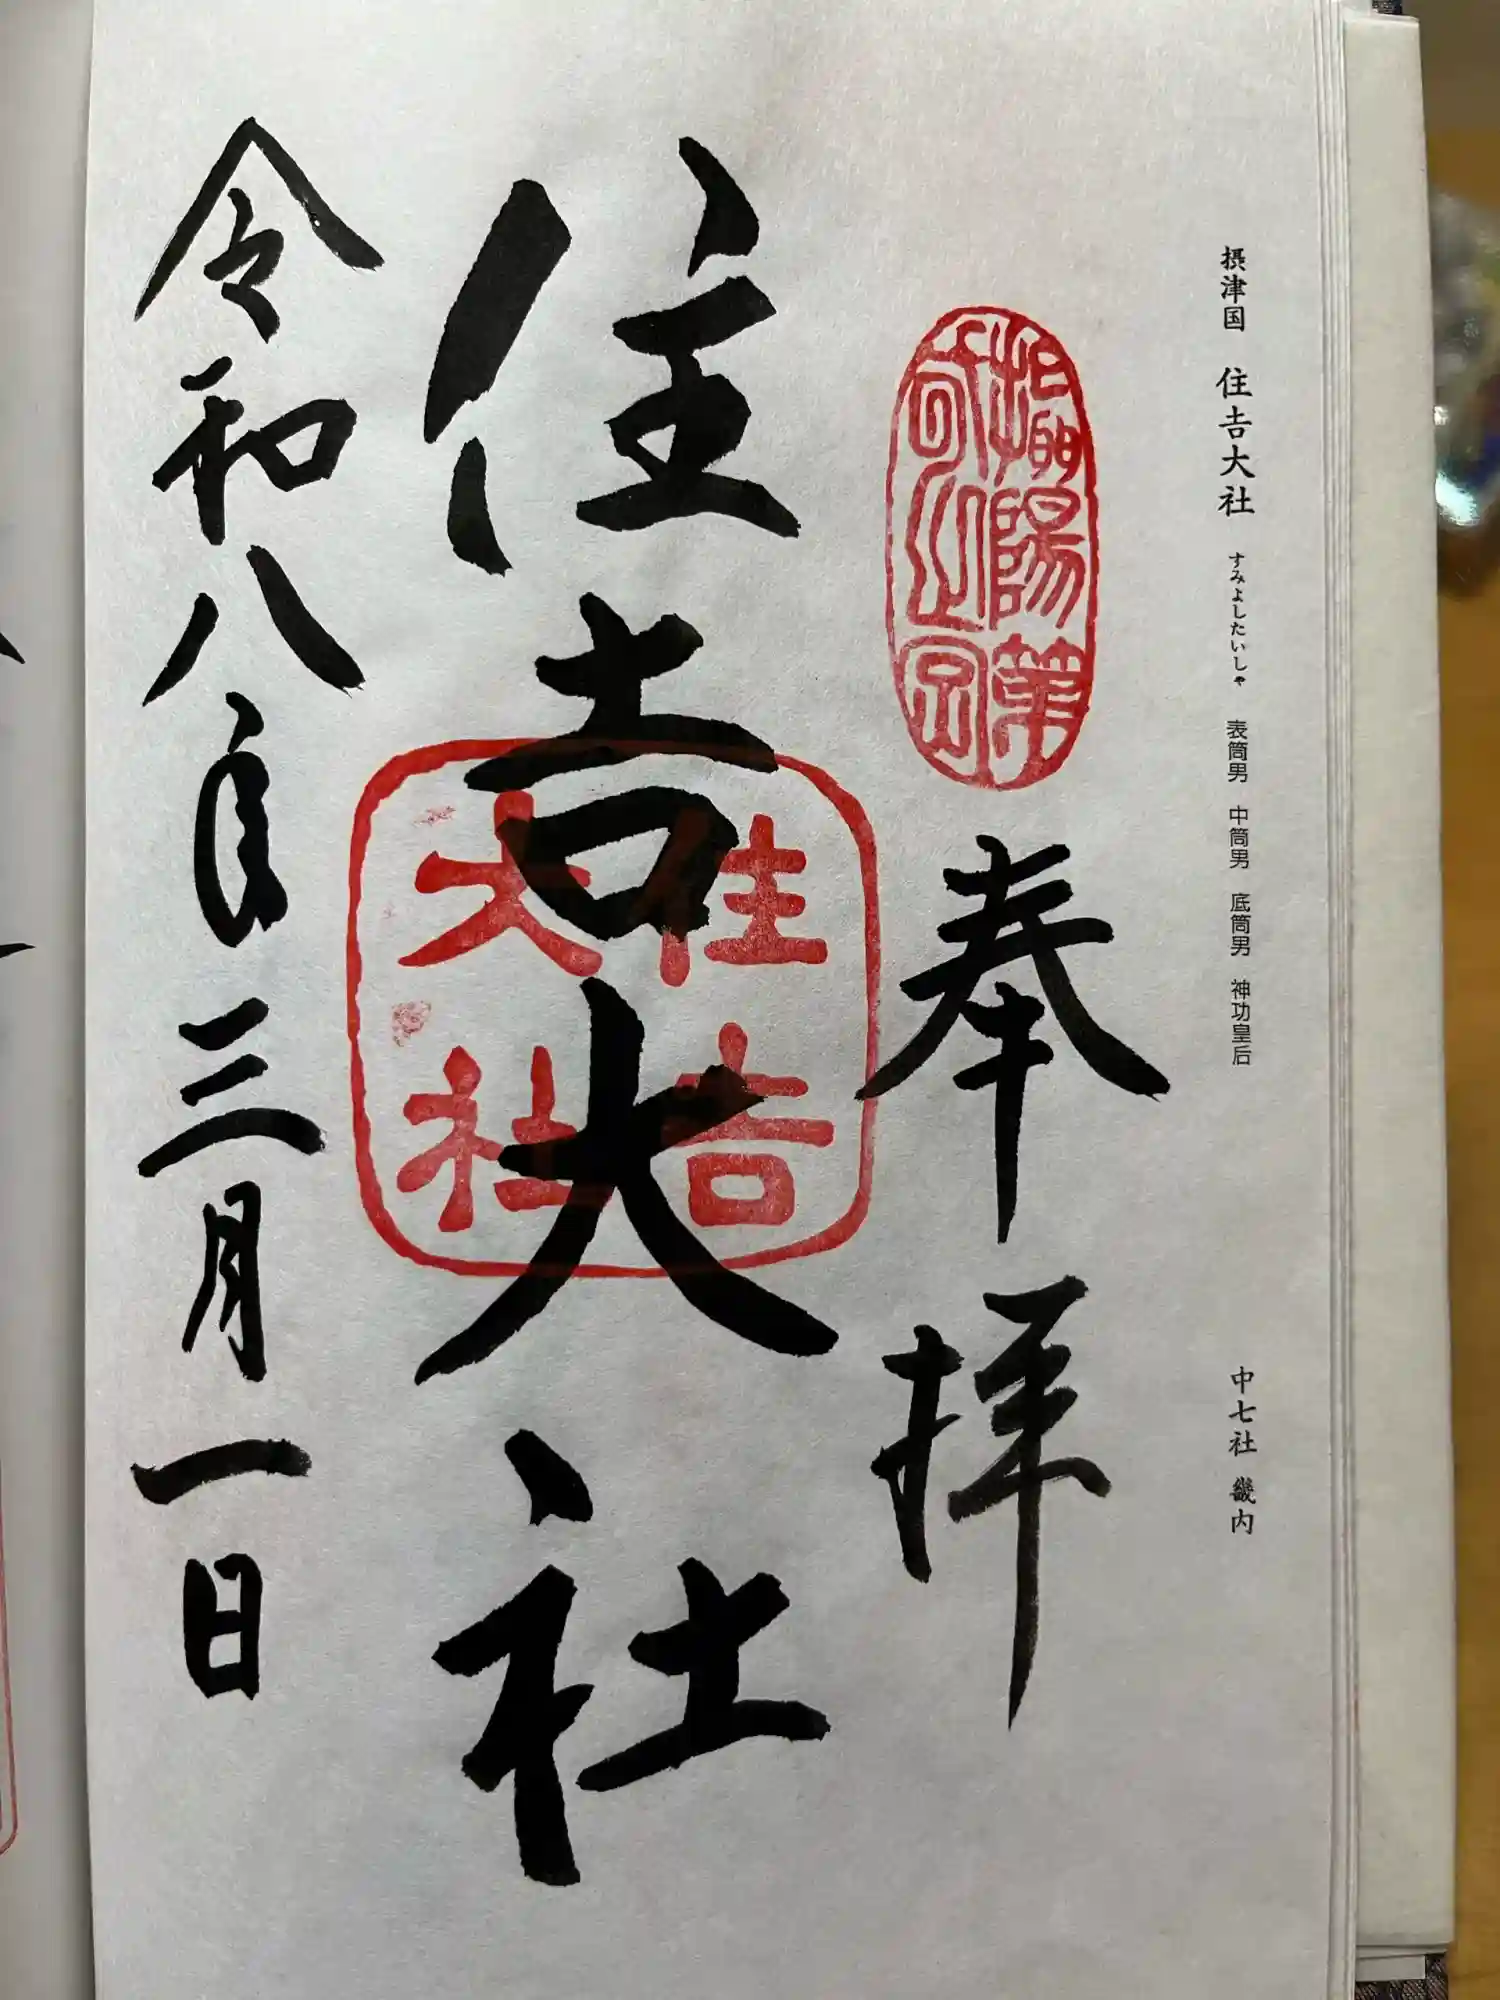 摂津国 住吉大社 すみよしたいしゃ 表筒男 中筒男 底筒男 神功皇后 中七社 畿内
奉拝
住吉大社
住吉
大社
令和八年三月一日